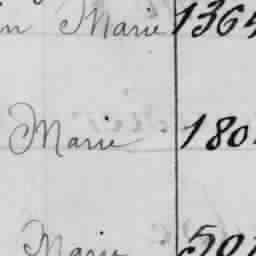 in Marie 1364
Marie 180
Marie 501